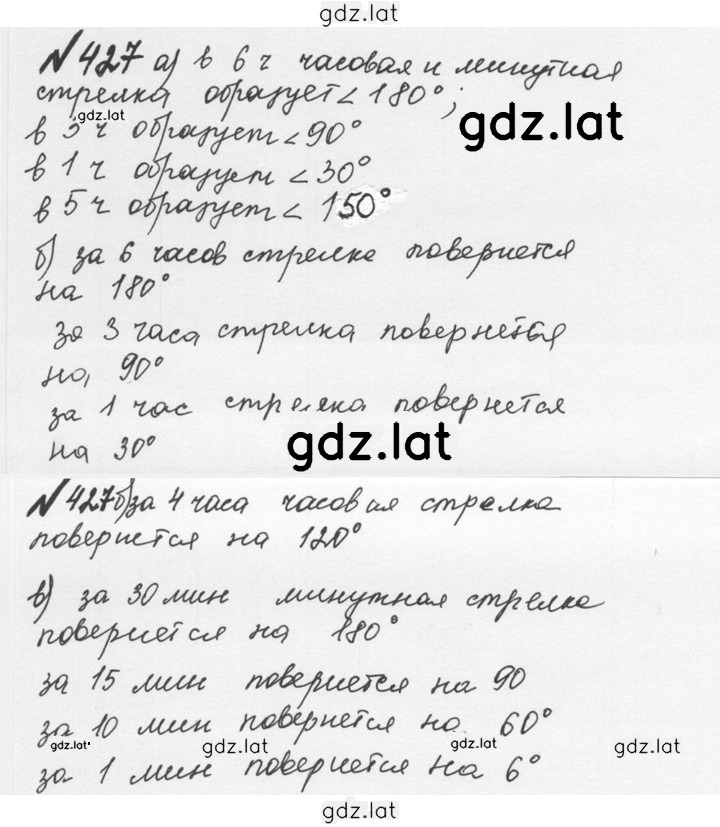 gdz.lat
№427 а) в 6 ч часовая и минутная
стрелка образует ∠180°;
gdz.lat
gdz.lat
в 3 ч образует ∠90°
в 1 ч образует ∠30°
в 5 ч образует ∠150°
б) за 6 часов стрелка повернется
на 180°
за 3 часа стрелка повернется
на 90°
за 1 час стрелка повернется
на 30°
gdz.lat
№427 б) за 4 часа часовая стрелка
повернется на 120°
в) за 30 мин минутная стрелка
повернется на 180°
за 15 мин повернется на 90
за 10 мин повернется на 60°
gdz.lat gdz.lat gdz.lat gdz.lat
за 1 мин повернется на 6°
gdz.lat